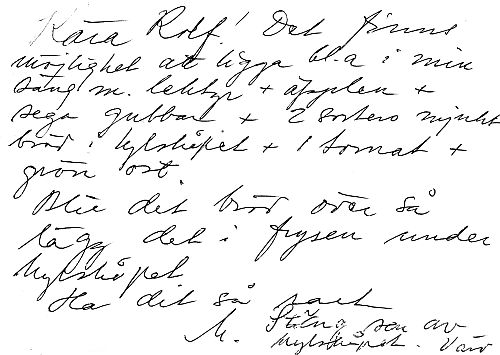 Kära Rolf! Det finns
möjlighet att ligga bl.a i min
säng m. lektyr + äpplen +
sega gubbar + 2 sorters mjukt
bröd i kylskåpet + 1 tomat +
grön ost
Blir det bröd över så
lägg det i frysen under
kylskåpet
Ha det så
M. Stäng sen av
kylskåpet.